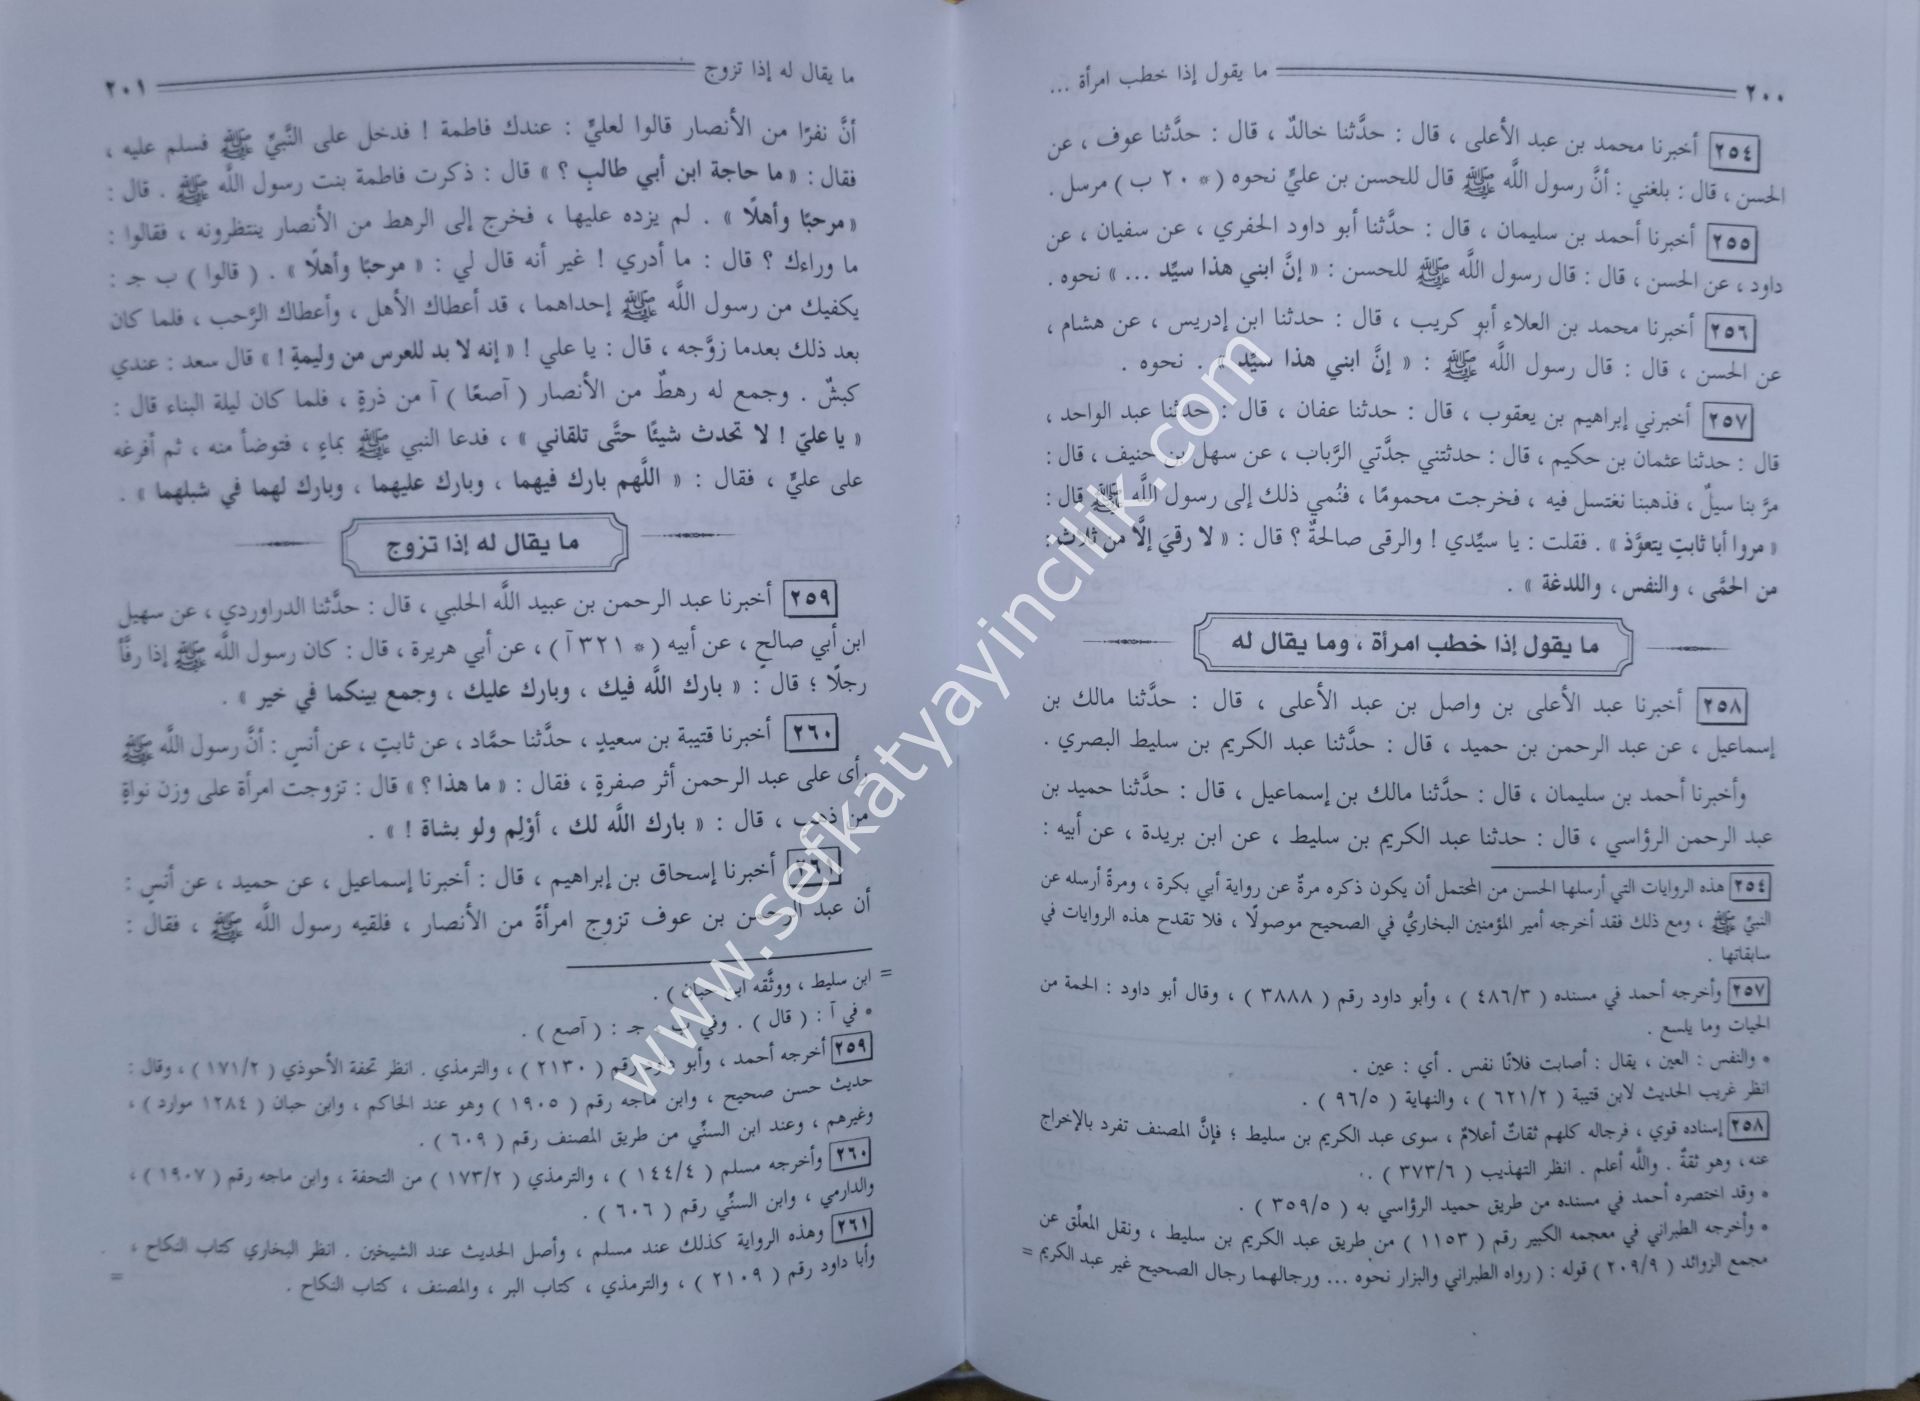 ٢٠٠ ما يقول إذا خطب امرأة ...
٢٥٤ أخبرنا محمد بن عبد الأعلى ، قال : حدَّثنا خالدٌ ، قال : حدَّثنا عوف ، عن
الحسن ، قال : بلغني : أنَّ رسول اللَّه ﷺ قال للحسن بن عليٍّ نحوه ( * ٢٠ ب ) مرسل .
٢٥٥ أخبرنا أحمد بن سليمان ، قال : حدَّثنا أبو داود الحفري ، عن سفيان ، عن
داود ، عن الحسن ، قال : قال رسول اللَّه ﷺ للحسن : « إنَّ ابني هذا سيِّد ... » نحوه .
٢٥٦ أخبرنا محمد بن العلاء أبو كريب ، قال : حدثنا ابن إدريس ، عن هشام ،
عن الحسن ، قال : قال رسول اللَّه ﷺ : « إنَّ ابني هذا سيِّد » . نحوه .
٢٥٧ أخبرني إبراهيم بن يعقوب ، قال : حدثنا عفان ، قال : حدثنا عبد الواحد ،
قال : حدثنا عثمان بن حكيم ، قال : حدثتني جدَّتي الرَّباب ، عن سهل بن حنيف ، قال :
مرَّ بنا سيلٌ ، فذهبنا نغتسل فيه ، فخرجت محمومًا ، فنُمي ذلك إلى رسول اللَّه ﷺ قال :
« مروا أبا ثابتٍ يتعوَّذ » . فقلت : يا سيِّدي ! والرقى صالحةٌ ؟ قال : « لا رقيَ إلَّا من ثلاث :
من الحمَّى ، والنفس ، واللدغة » .
ما يقول إذا خطب امرأة ، وما يقال له
٢٥٨ أخبرنا عبد الأعلى بن واصل بن عبد الأعلى ، قال : حدَّثنا مالك بن
إسماعيل ، عن عبد الرحمن بن حميد ، قال : حدَّثنا عبد الكريم بن سليط البصري .
وأخبرنا أحمد بن سليمان ، قال : حدَّثنا مالك بن إسماعيل ، قال : حدَّثنا حميد بن
عبد الرحمن الرؤاسي ، قال : حدثنا عبد الكريم بن سليط ، عن ابن بريدة ، عن أبيه :
٢٥٤ هذه الروايات التي أرسلها الحسن من المحتمل أن يكون ذكره مرةً عن رواية أبي بكرة ، ومرةً أرسله عن
النبيِّ ﷺ ، ومع ذلك فقد أخرجه أمير المؤمنين البخاريُّ في الصحيح موصولًا ، فلا تقدح هذه الروايات في
سابقاتها .
٢٥٧ وأخرجه أحمد في مسنده ( ٤٨٦/٣ ) ، وأبو داود رقم ( ٣٨٨٨ ) ، وقال أبو داود : الحمة من
الحيات وما يلسع .
* والنفس : العين ، يقال : أصابت فلانًا نفس . أي : عين .
انظر غريب الحديث لابن قتيبة ( ٦٢١/٢ ) ، والنهاية ( ٩٦/٥ ) .
٢٥٨ إسناده قوي ، فرجاله كلهم ثقاتٌ أعلامٌ ، سوى عبد الكريم بن سليط ؛ فإنَّ المصنف تفرد بالإخراج
عنه ، وهو ثقةٌ . واللَّه أعلم . انظر التهذيب ( ٣٧٣/٦ ) .
* وقد اختصره أحمد في مسنده من طريق حميد الرؤاسي به ( ٣٥٩/٥ ) .
* وأخرجه الطبراني في معجمه الكبير رقم ( ١١٥٣ ) من طريق عبد الكريم بن سليط ، ونقل المعلِّق عن
مجمع الزوائد ( ٢٠٩/٩ ) قوله : ( رواه الطبراني والبزار نحوه ... ورجالهما رجال الصحيح غير عبد الكريم =
ما يقال له إذا تزوج ٢٠١
أنَّ نفرًا من الأنصار قالوا لعليٍّ : عندك فاطمة ! فدخل على النَّبيِّ ﷺ فسلم عليه ،
فقال : « ما حاجة ابن أبي طالبٍ ؟ » قال : ذكرت فاطمة بنت رسول اللَّه ﷺ . قال :
« مرحبًا وأهلًا » . لم يزده عليها ، فخرج إلى الرهط من الأنصار ينتظرونه ، فقالوا :
ما وراءك ؟ قال : ما أدري ! غير أنه قال لي : « مرحبًا وأهلًا » . ( قالوا ) ب جـ :
يكفيك من رسول اللَّه ﷺ إحداهما ، قد أعطاك الأهل ، وأعطاك الرَّحب ، فلما كان
بعد ذلك بعدما زوَّجه ، قال : يا علي ! « إنه لا بد للعرس من وليمةٍ ! » قال سعد : عندي
كبشٌ . وجمع له رهطٌ من الأنصار ( آصعًا ) آ من ذرةٍ ، فلما كان ليلة البناء قال :
« يا عليّ ! لا تحدث شيئًا حتَّى تلقاني » ، فدعا النبي ﷺ بماءٍ ، فتوضأ منه ، ثم أفرغه
على عليٍّ ، فقال : « اللَّهم بارك فيهما ، وبارك عليهما ، وبارك لهما في شبلهما » .
ما يقال له إذا تزوج
٢٥٩ أخبرنا عبد الرحمن بن عبيد اللَّه الحلبي ، قال : حدَّثنا الدراوردي ، عن سهيل
ابن أبي صالحٍ ، عن أبيه ( * ٣٢١ آ ) ، عن أبي هريرة ، قال : كان رسول اللَّه ﷺ إذا رفَّأ
رجلًا ؛ قال : « بارك اللَّه فيك ، وبارك عليك ، وجمع بينكما في خير » .
٢٦٠ أخبرنا قتيبة بن سعيدٍ ، حدَّثنا حمَّاد ، عن ثابتٍ ، عن أنسٍ : أنَّ رسول اللَّه ﷺ
رأى على عبد الرحمن أثر صفرةٍ ، فقال : « ما هذا ؟ » قال : تزوجت امرأة على وزن نواةٍ
من ذهب ، قال : « بارك اللَّه لك ، أوْلِم ولو بشاة ! » .
٢٦١ أخبرنا إسحاق بن إبراهيم ، قال : أخبرنا إسماعيل ، عن حميد ، عن أنسٍ :
أن عبد الرحمن بن عوف تزوج امرأةً من الأنصار ، فلقيه رسول اللَّه ﷺ ، فقال :
= ابن سليط ، ووثَّقه ابن حبان ) .
* في آ : ( قال ) . وفي ب ، جـ : ( آصع ) .
٢٥٩ أخرجه أحمد ، وأبو داود رقم ( ٢١٣٠ ) ، والترمذي . انظر تحفة الأحوذي ( ١٧١/٢ ) ، وقال :
حديث حسن صحيح ، وابن ماجه رقم ( ١٩٠٥ ) وهو عند الحاكم ، وابن حبان ( ١٢٨٤ موارد ) ،
وغيرهم ، وعند ابن السنِّي من طريق المصنف رقم ( ٦٠٩ ) .
٢٦٠ وأخرجه مسلم ( ١٤٤/٤ ) ، والترمذي ( ١٧٣/٢ ) من التحفة ، وابن ماجه رقم ( ١٩٠٧ ) ،
والدارمي ، وابن السنِّي رقم ( ٦٠٦ ) .
٢٦١ وهذه الرواية كذلك عند مسلم ، وأصل الحديث عند الشيخين . انظر البخاري كتاب النكاح ،
وأبا داود رقم ( ٢١٠٩ ) ، والترمذي ، كتاب البر ، والمصنف ، كتاب النكاح . =
www.sefkatyayincilik.com